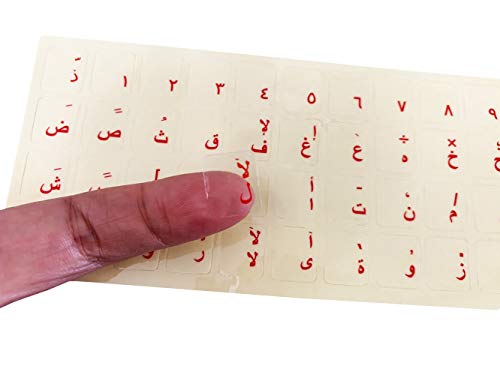 ذّ ١ ٢ ٣ ٤ ٥ ٦ ٧ ٨ ٩
ضَ صً ثُ ق لإ ف إ غ ع ÷ ه × خ
شِ [ لأ ل أ ا ـ ت ، ن / م
ر لآ لا آ ى ة و ز